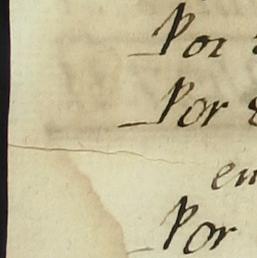 Por
Por
en
Por